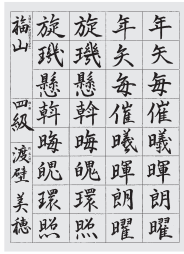 年矢毎催曦暉朗曜
年矢毎催曦暉朗曜
旋璣懸斡晦魄環照
旋璣懸斡晦魄環照
福山 四級 渡壁美穂